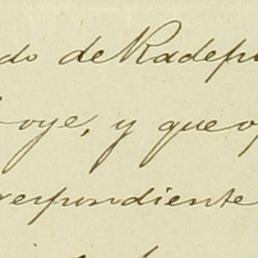 do de Radepi
oye, y que o
respondiente